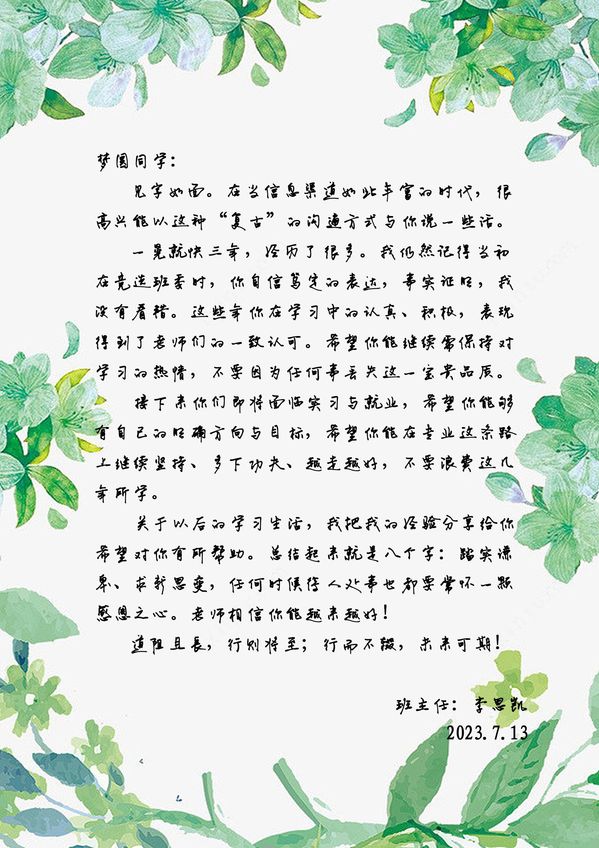 梦圆同学：
见字如面。在当信息渠道如此丰富的时代，很
高兴能以这种“复古”的沟通方式与你说一些话。
一晃就快三年，经历了很多。我仍然记得当初
在竞选班委时，你自信笃定的表达，事实证明，我
没有看错。这些年你在学习中的认真、积极，表现
得到了老师们的一致认可。希望你能继续需保持对
学习的热情，不要因为任何事丢失这一宝贵品质。
接下来你们即将面临实习与就业，希望你能够
有自己的明确方向与目标，希望你能在专业这条路
上继续坚持、多下功夫、越走越好，不要浪费这几
年所学。
关于以后的学习生活，我把我的经验分享给你
希望对你有所帮助。总结起来就是八个字：踏实谦
卑、求新思变，任何时候待人处事也都要常怀一颗
感恩之心。老师相信你能越来越好！
道阻且长，行则将至；行而不辍，未来可期！
班主任：李思凯
2023.7.13